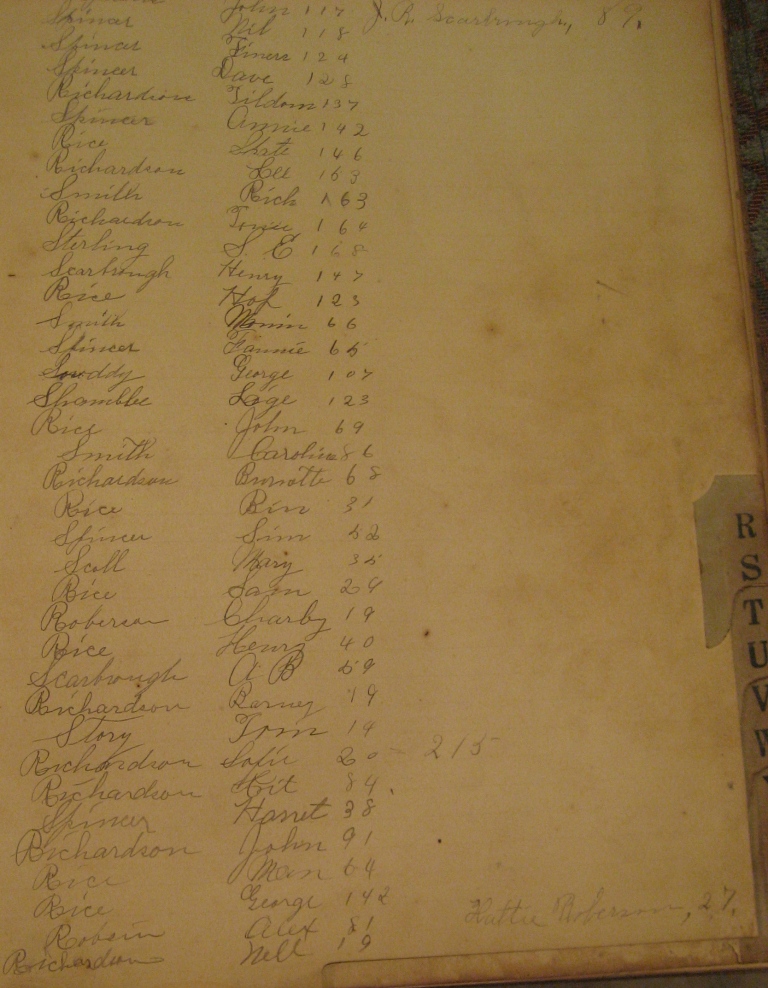 Spincer John 117 J. R. Scarbrough, 89.
Spincer 118
Spincer 124
Spincer Dave 128
Richardson Tildom 137
Spincer Annie 142
Rice 146
Richardson Lee 153
Smith Rich 163
Richardson 164
Sterling S. E 168
Scarbrough Henry 147
Rice Hop 123
Smith 66
Spincer Fannie 65
Snoddy George 107
Shamblee Lage 123
Rice John 69
Smith Caroline 86
Richardson 68
Rice Ben 31
Spincer Sim 52
Scoll Mary 35
Rice Sam 29
Roberson Charley 19
Rice Henry 40
Scarbrough A B 59
Richardson Barney 19
Story Tom 14
Richardson Sofie 20 - 215
Richardson Hit 84
Spincer Harret 38
Richardson John 91
Rice Man 64
Rice George 142
Hattie Roberson, 27.
Alex 81
Richardson Nell 19
R
S
T
U
V
W